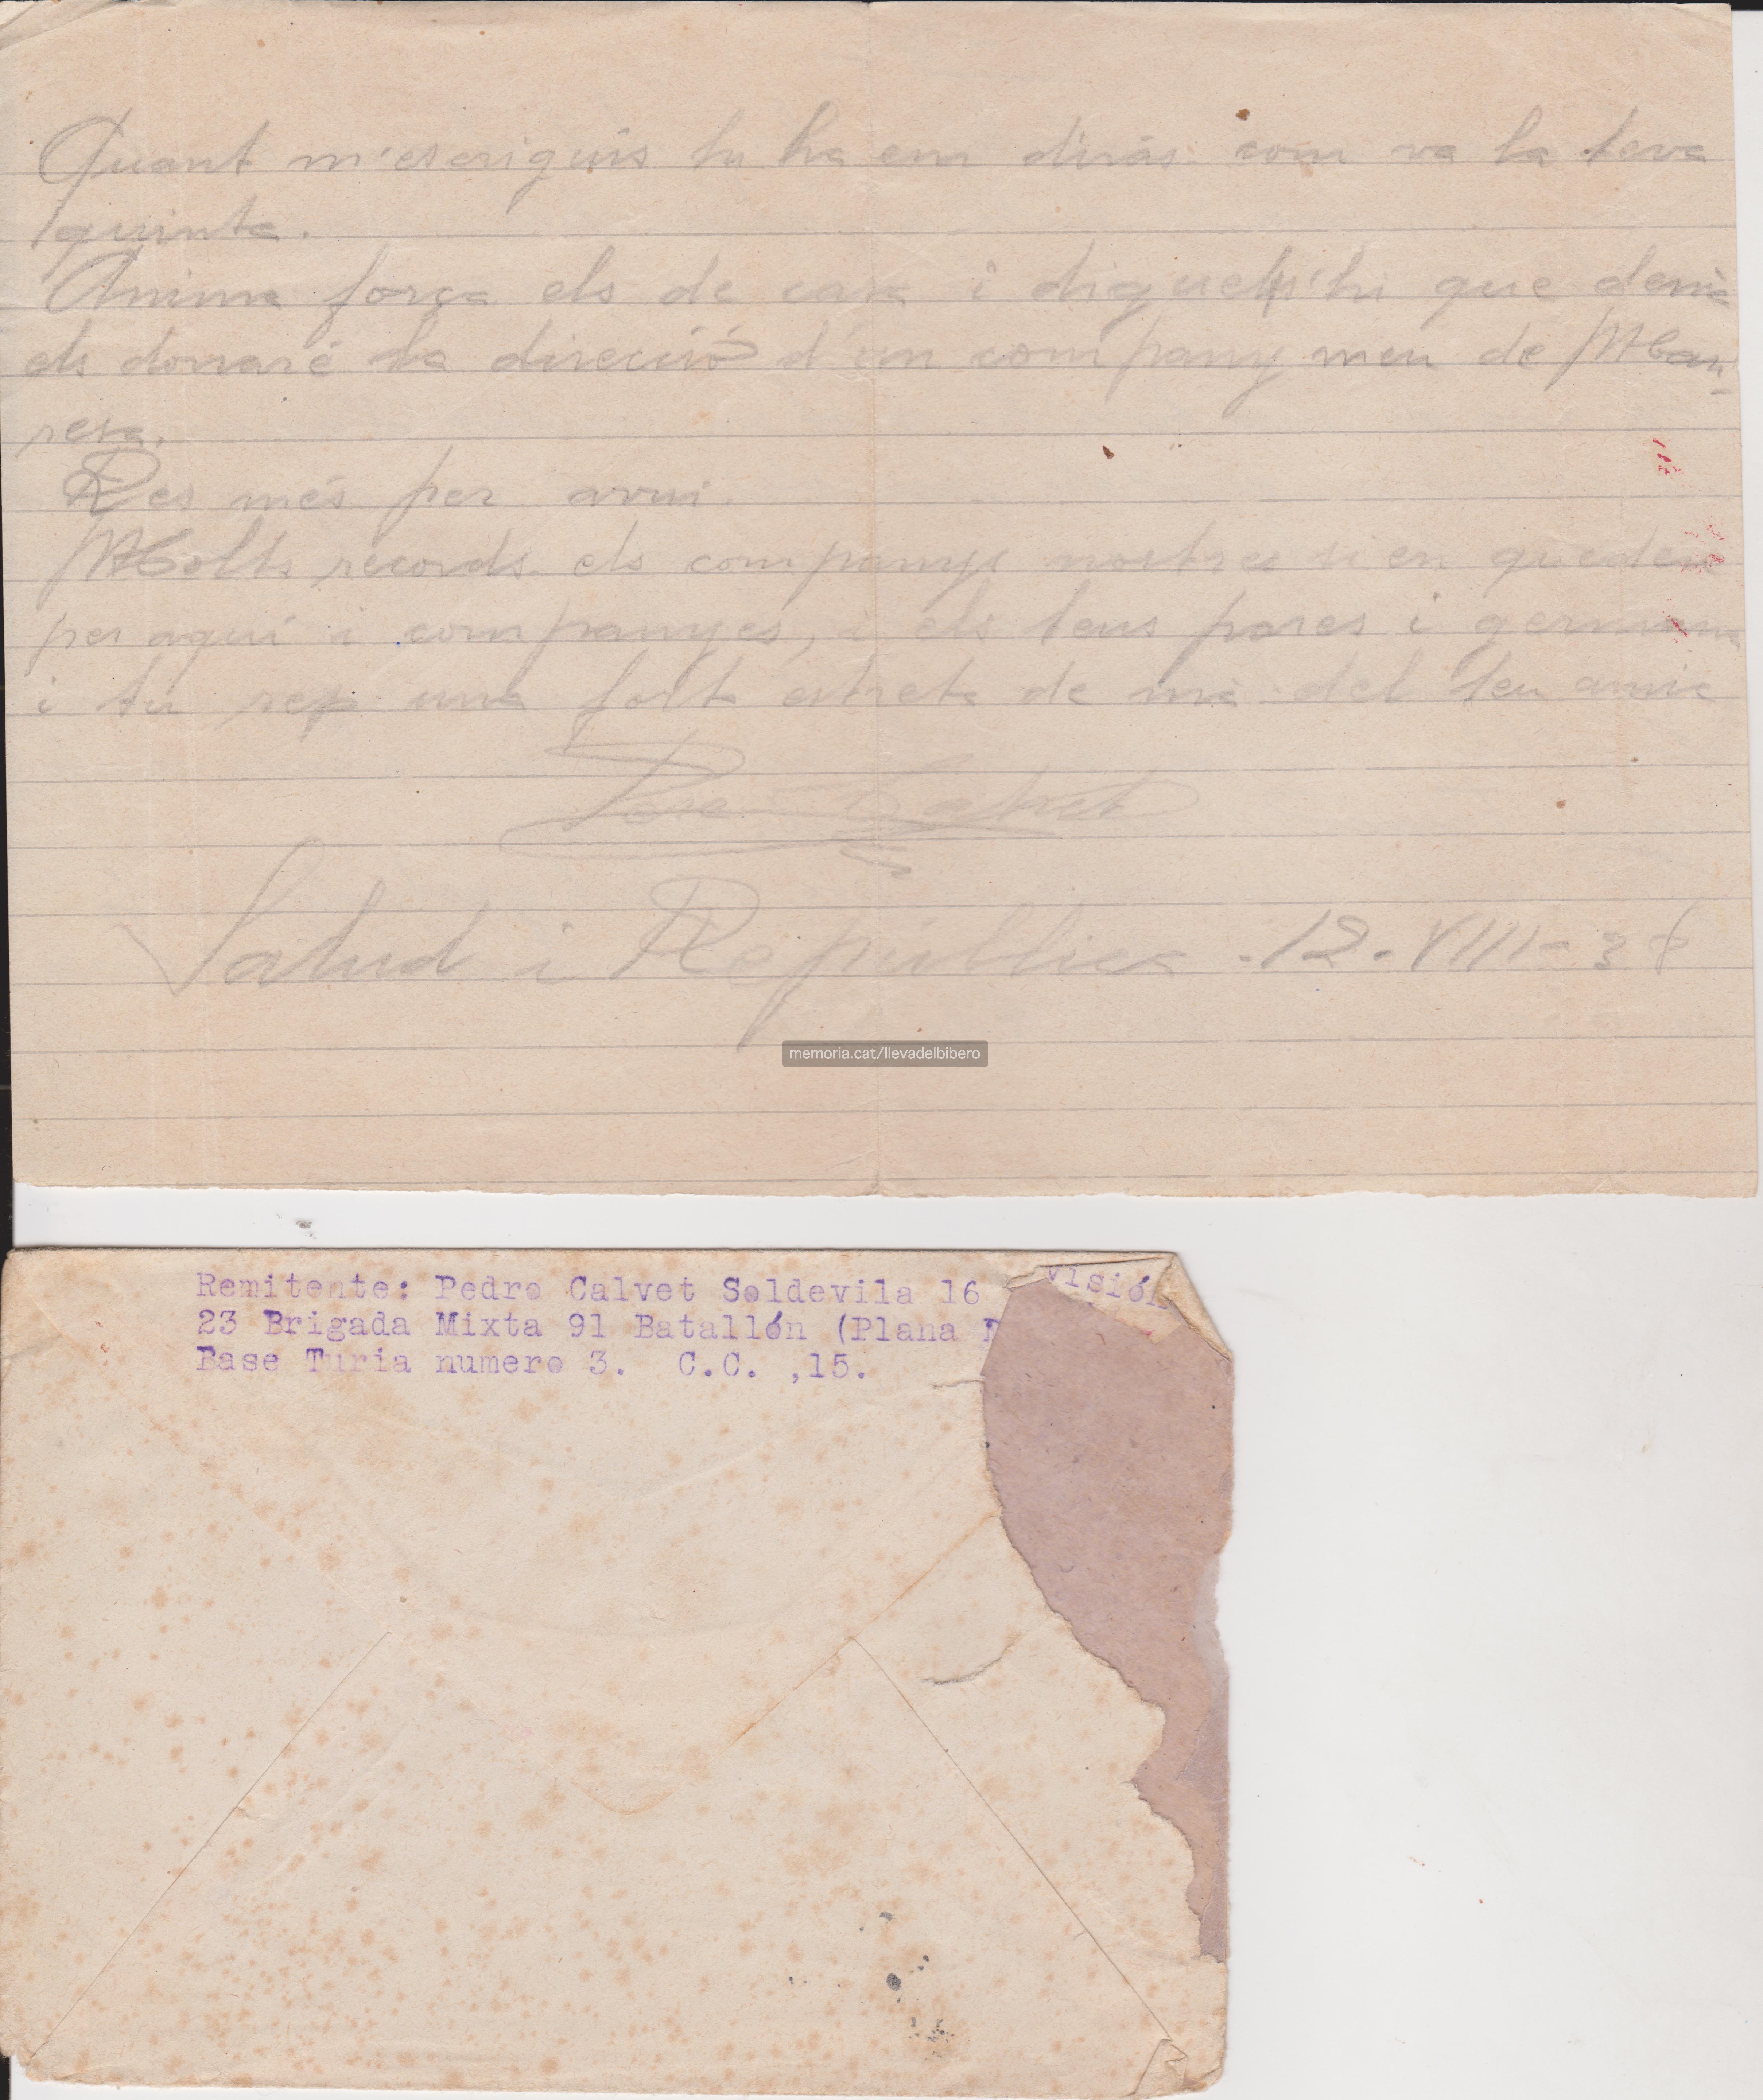 Quant m'escriguis tu ha em diràs com va la teva
quinta.
Anima força els de casa i diguels'hi que demà
els donaré la direcció d'un company meu de Man-
resa.
Res més per avui.
Molts records els companys nostres si en queden
per aquí i companyes, i els teus pares i germana
i tu rep una forta estreta de mà del teu amic
Pere Calvet
Salud i República .12.VIII-38
memoria.cat/llevadelbibero
Remitente: Pedro Calvet Soldevila 16 visión
23 Brigada Mixta 91 Batallón (Plana
Base Turia numero 3. C.C. ,15.